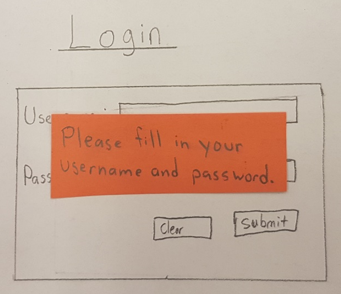 Login
Use
Please fill in your
username and password.
Pass
Clear
Submit